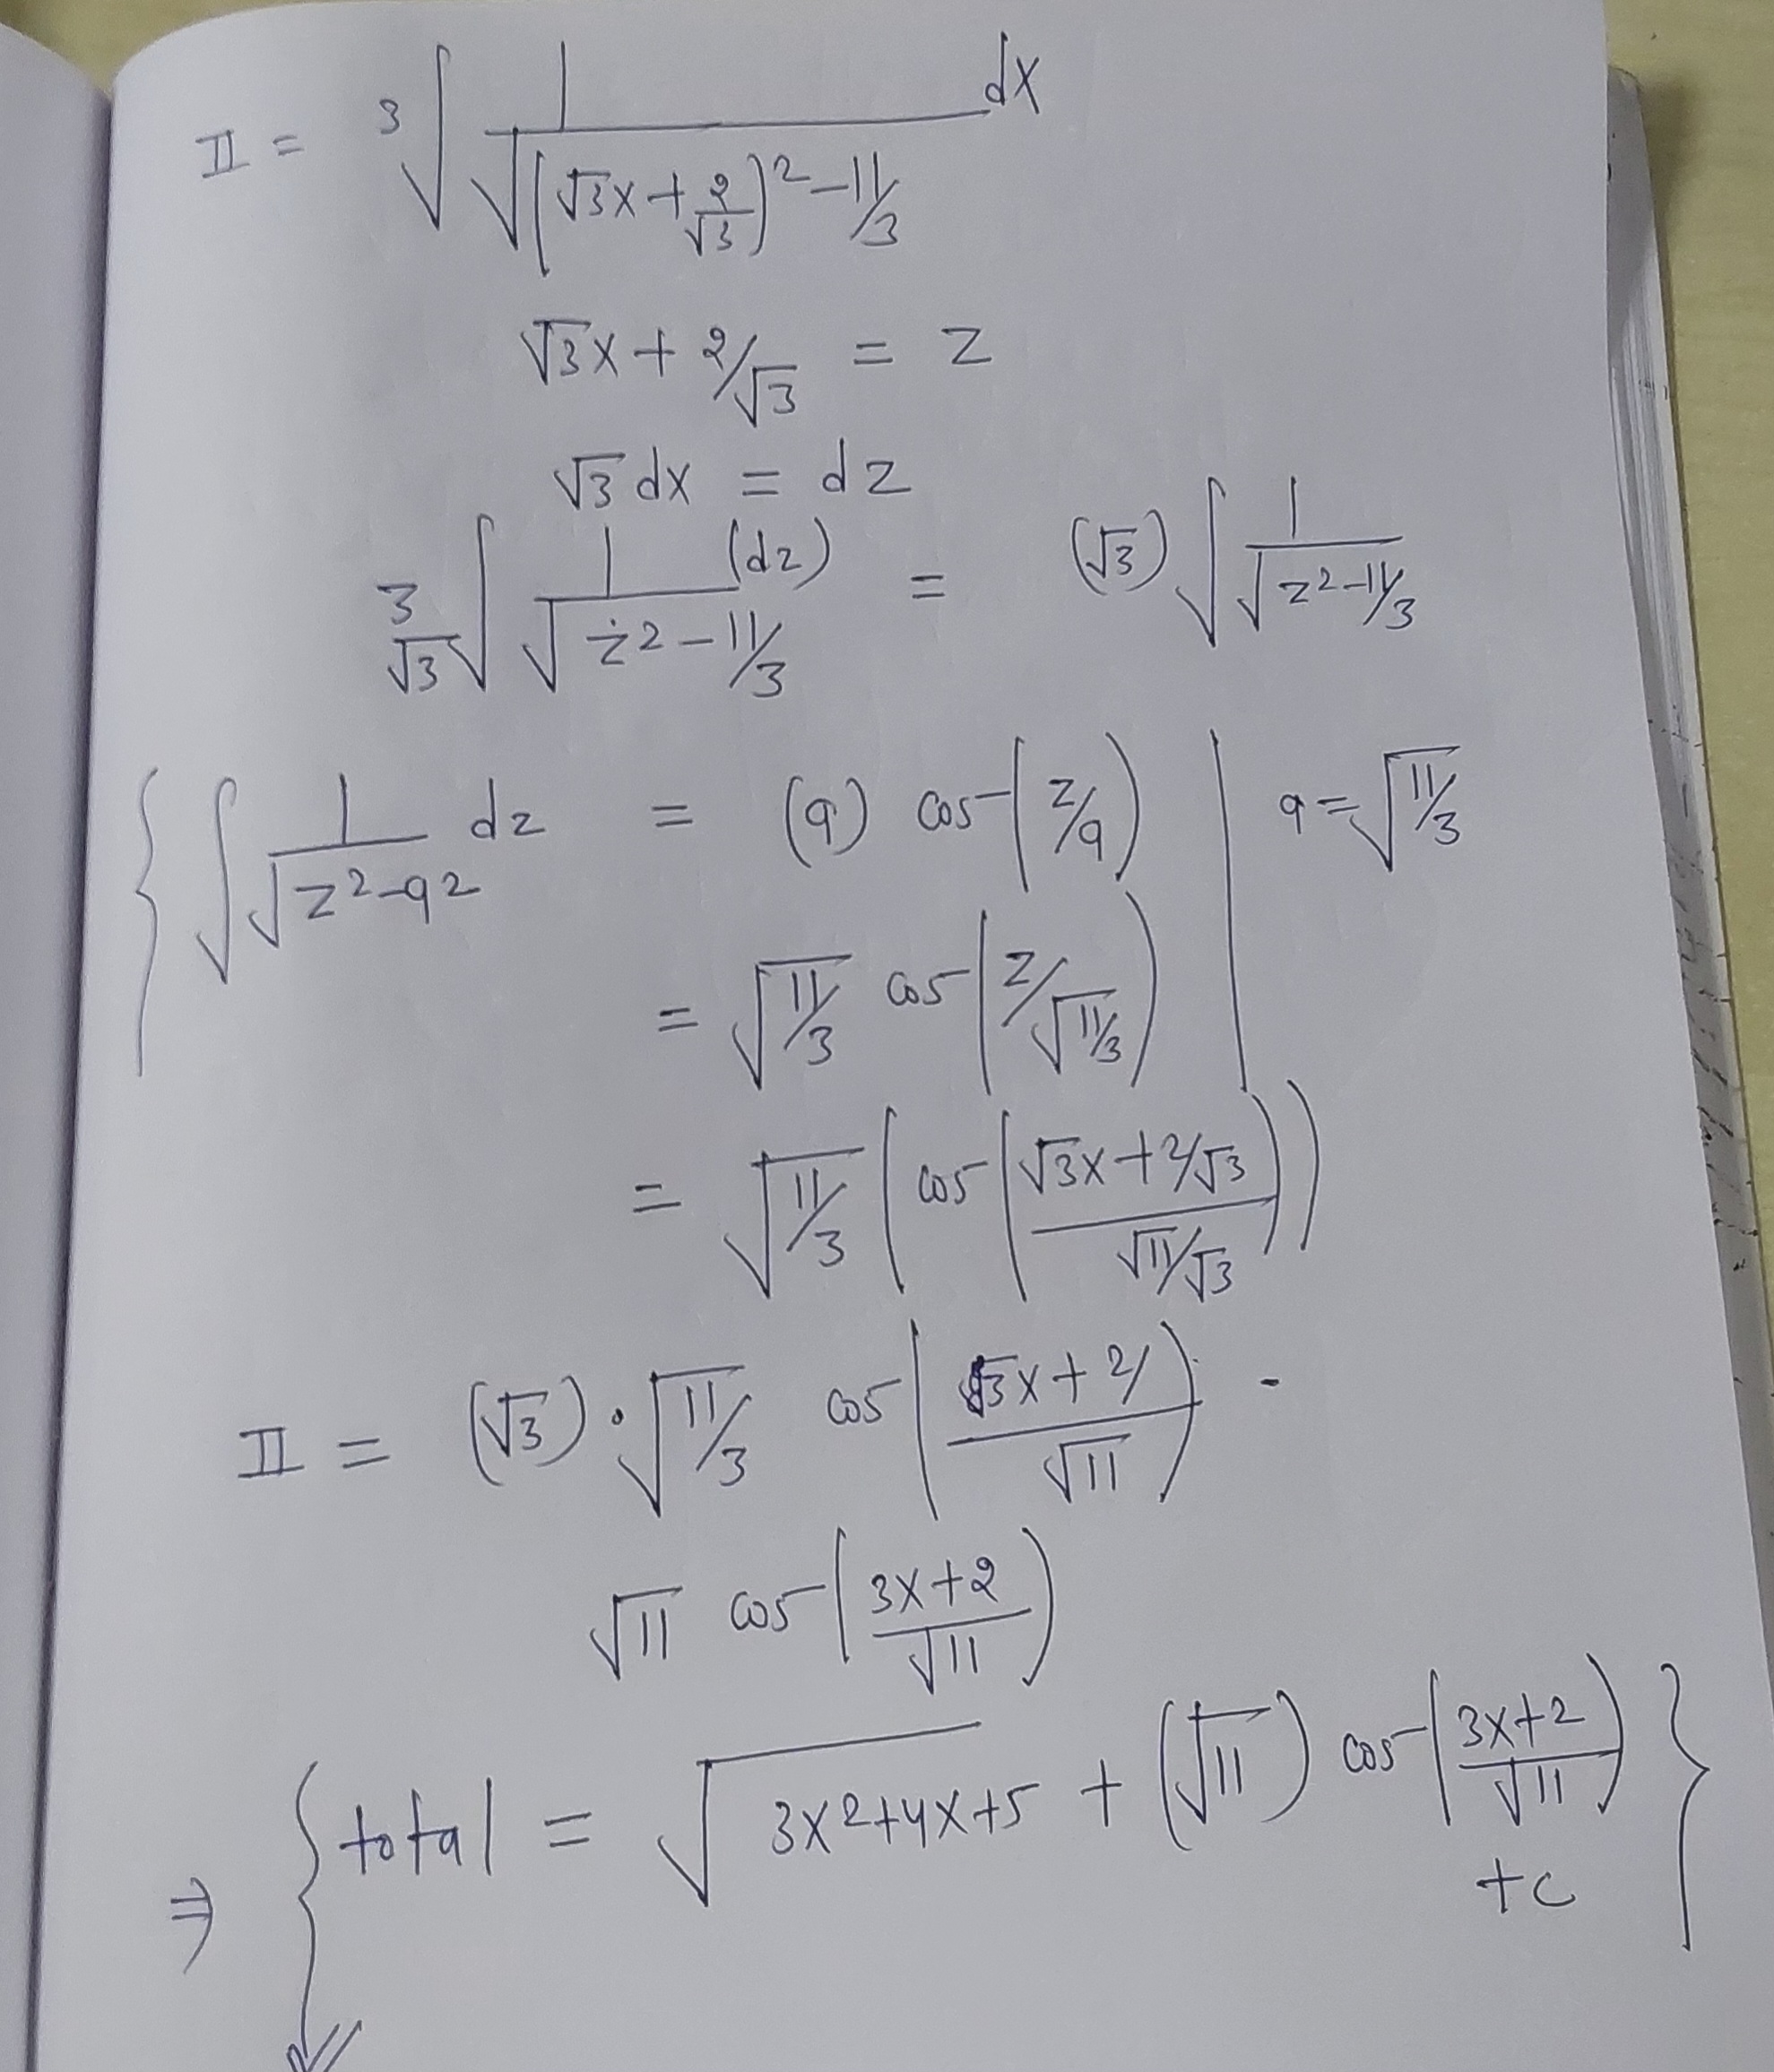 II = 3 ∫ 1/√((√3x + 2/√3)² - 11/3) dx
√3x + 2/√3 = z
√3 dx = dz
3/√3 ∫ 1/√(z² - 11/3) (dz) = (√3) ∫ 1/√(z² - 11/3)
{ ∫ 1/√(z² - a²) dz = (a) cos⁻(z/a) | a = √11/3
= √11/3 cos⁻(z/√11/3)
= √11/3 (cos⁻((√3x + 2/√3)/(√11/√3)))
II = (√3) · √11/3 cos⁻((3x + 2/)/√11) -
√11 cos⁻((3x + 2)/√11)
⇒ { total = √(3x² + 4x + 5) + (√11) cos⁻((3x + 2)/√11) }
+ c